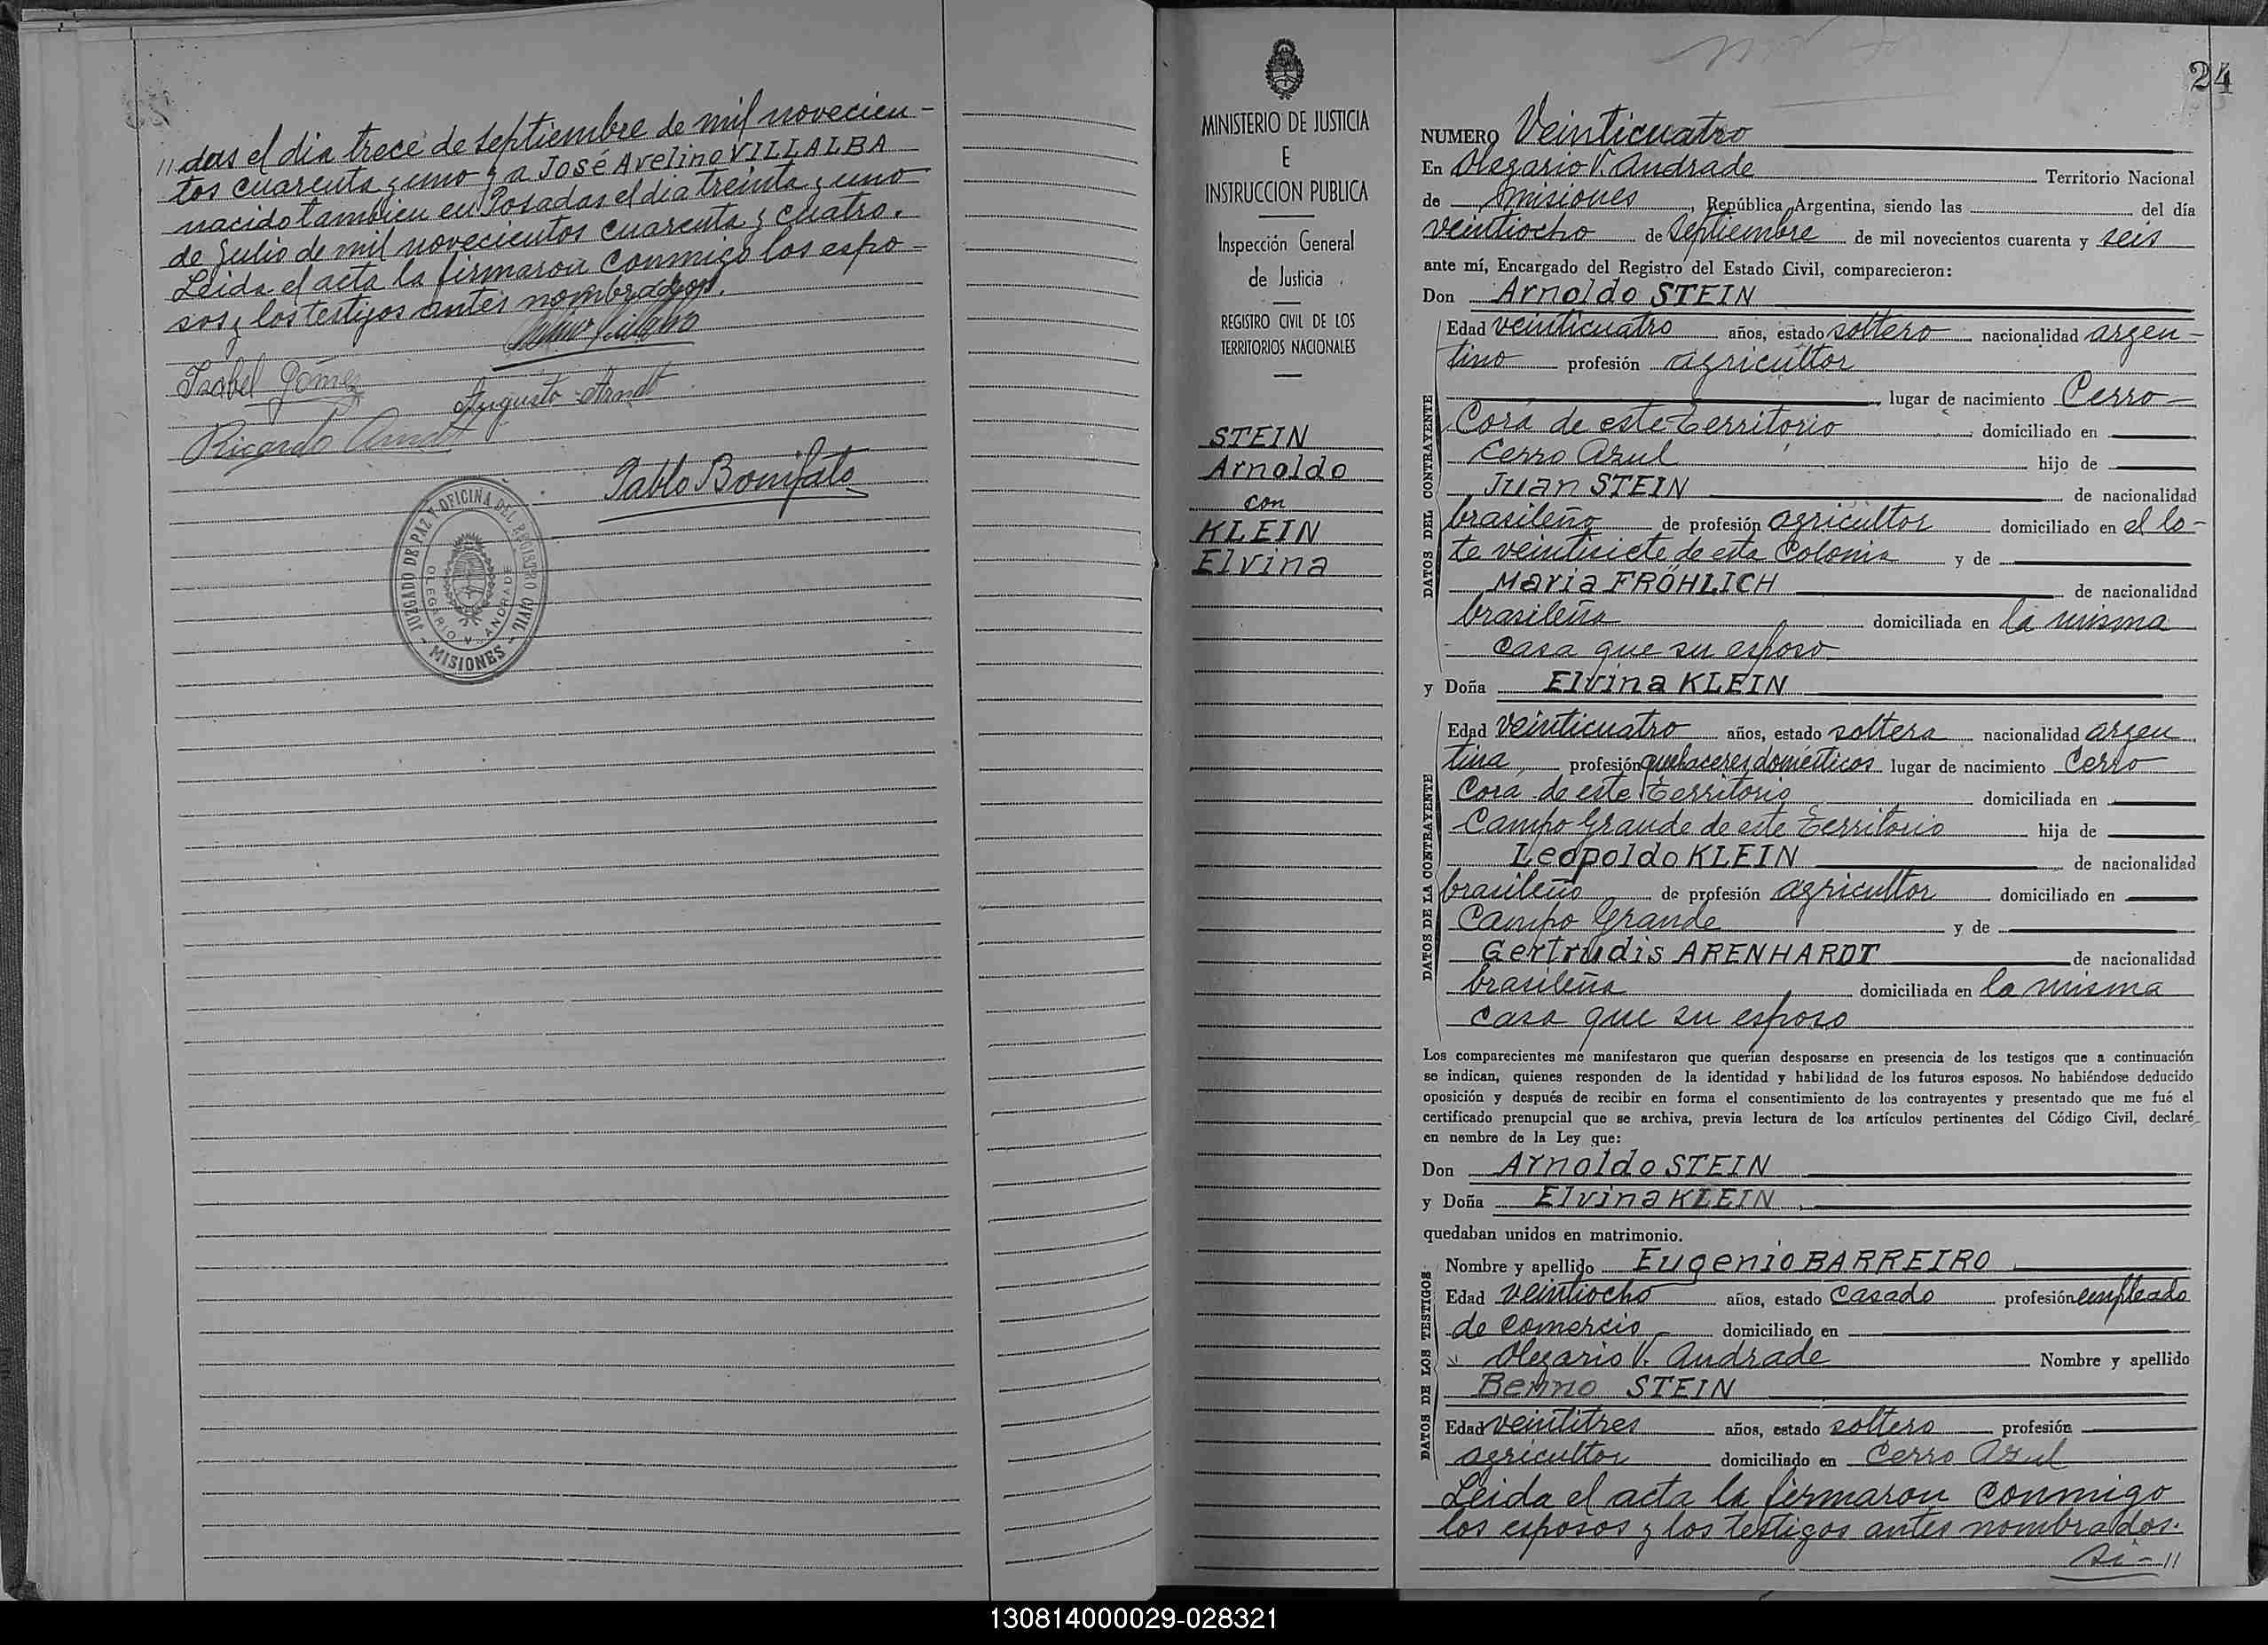 "das el dia trece de septiembre de mil novecien-
tos cuarenta y uno y a José Avelino VILLALBA
nacido tambien en Posadas el dia treinta y uno
de Julio de mil novecientos cuarenta y cuatro.
Leida el acta la firmaron conmigo los espo-
sos y los testigos antes nombrados.
Isabel Gómez
Augusto Arndt
Ricardo Arndt
Pablo Bonifato
JUZGADO DE PAZ Y OFICINA DEL REGISTRO CIVIL
OLEGARIO V. ANDRADE
- MISIONES -
MINISTERIO DE JUSTICIA
E
INSTRUCCION PUBLICA
Inspección General
de Justicia
REGISTRO CIVIL DE LOS
TERRITORIOS NACIONALES
STEIN
Arnoldo
con
KLEIN
Elvina
24
NUMERO Veinticuatro
En Olegario V. Andrade Territorio Nacional
de Misiones, República Argentina, siendo las del día
veintiocho de Septiembre de mil novecientos cuarenta y seis
ante mí, Encargado del Registro del Estado Civil, comparecieron:
Don Arnoldo STEIN
DATOS DEL CONTRAYENTE
Edad veinticuatro años, estado soltero nacionalidad argen-
tino profesión agricultor
, lugar de nacimiento Cerro-
Corá de este Territorio domiciliado en
Cerro Azul hijo de
Juan STEIN de nacionalidad
brasileño de profesión agricultor domiciliado en el lo-
te veintisiete de esta Colonia y de
Maria FRÖHLICH de nacionalidad
brasileña domiciliada en la misma
casa que su esposo
y Doña Elvina KLEIN
DATOS DE LA CONTRAYENTE
Edad veinticuatro años, estado soltera nacionalidad argen
tina, profesión quehaceres domésticos lugar de nacimiento Cerro
Corá de este Territorio domiciliada en
Campo Grande de este Territorio hija de
Leopoldo KLEIN de nacionalidad
brasileño de profesión agricultor domiciliado en
Campo Grande y de
Gertrudis ARENHARDT de nacionalidad
brasileña domiciliada en la misma
casa que su esposo
Los comparecientes me manifestaron que querían desposarse en presencia de los testigos que a continuación
se indican, quienes responden de la identidad y habilidad de los futuros esposos. No habiéndose deducido
oposición y después de recibir en forma el consentimiento de los contrayentes y presentado que me fué el
certificado prenupcial que se archiva, previa lectura de los artículos pertinentes del Código Civil, declaré
en nombre de la Ley que:
Don Arnoldo STEIN
y Doña Elvina KLEIN
quedaban unidos en matrimonio.
DATOS DE LOS TESTIGOS
Nombre y apellido Eugenio BARREIRO
Edad veintiocho años, estado casado profesión empleado
de comercio, domiciliado en
Olegario V. Andrade Nombre y apellido
Benno STEIN
Edad veintitres años, estado soltero profesión
agricultor domiciliado en Cerro Azul
Leida el acta la firmaron conmigo
los esposos y los testigos antes nombrados.
si-"
130814000029-028321